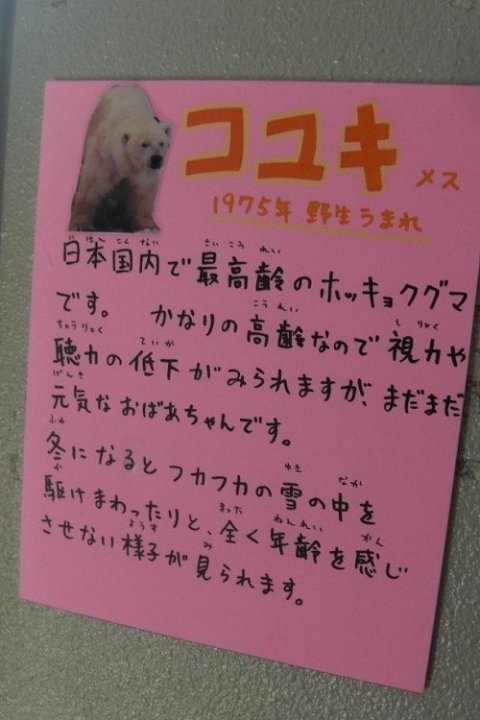 コユキ メス
1975年 野生うまれ
日本国内で最高齢のホッキョクグマ
です。 かなりの高齢なので視力や
聴力の低下がみられますが、まだまだ
元気なおばあちゃんです。
冬になるとフカフカの雪の中を
駆けまわったりと、全く年齢を感じ
させない様子が見られます。